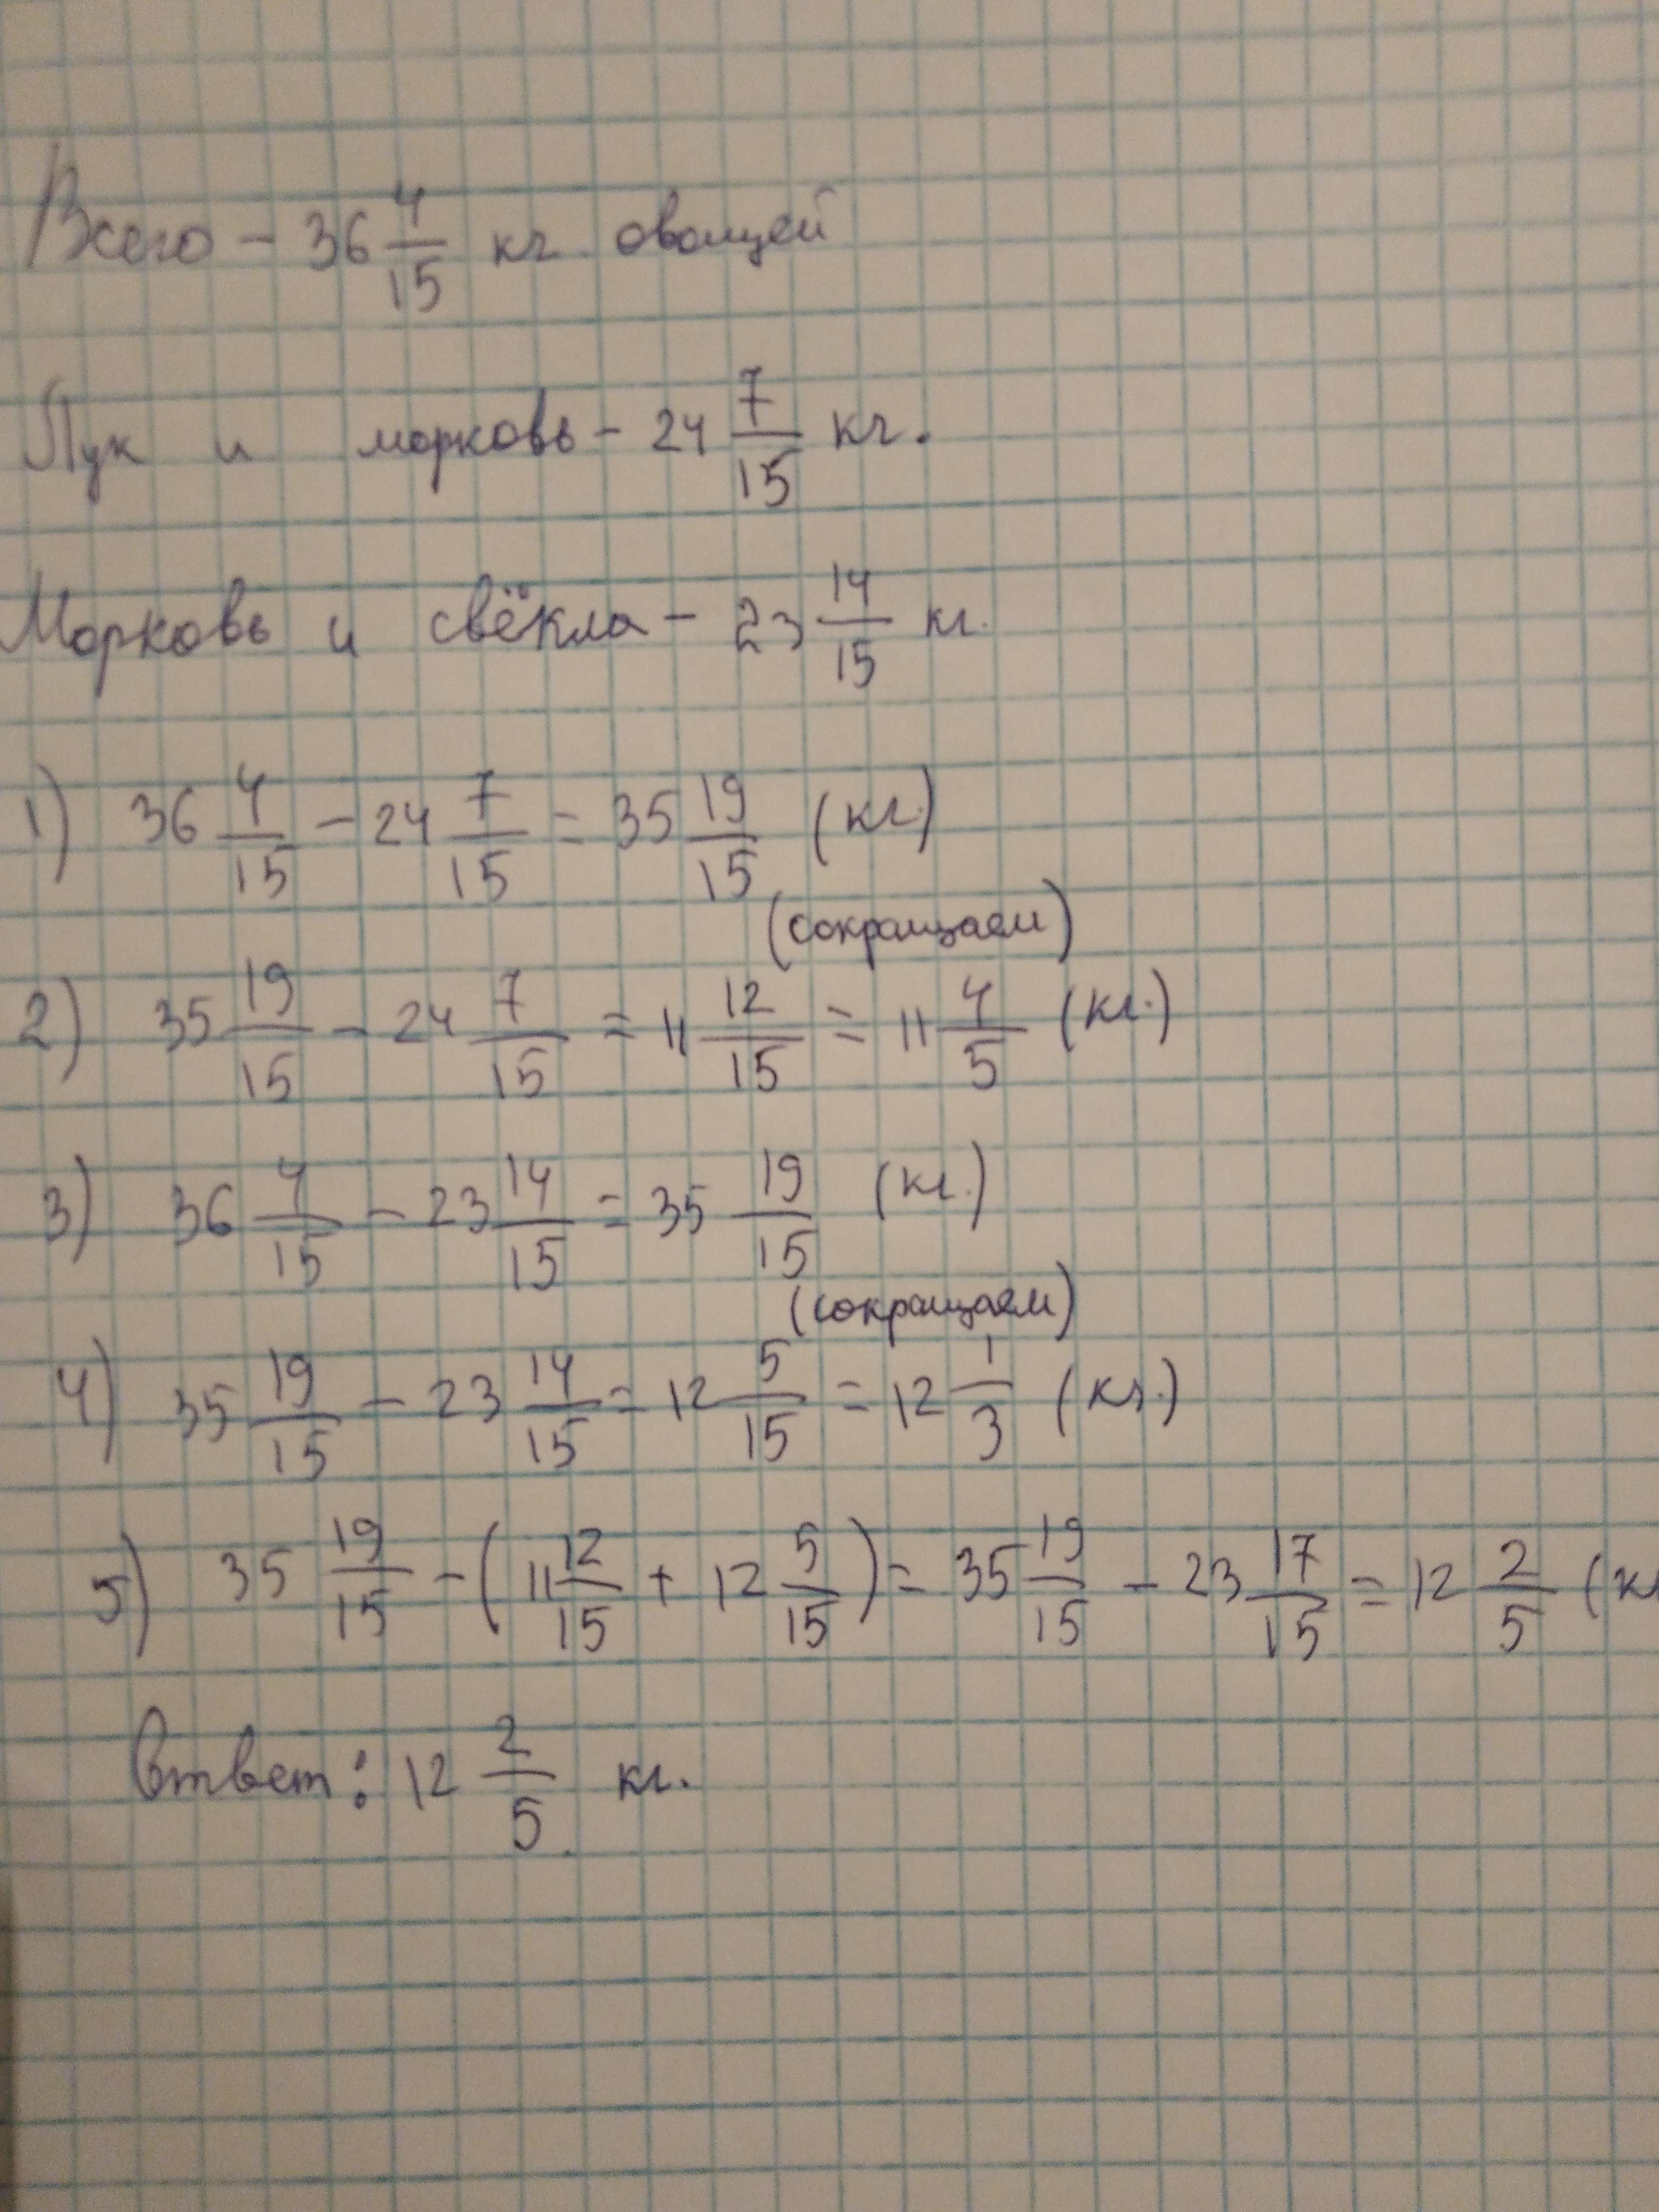 Всего - 36 4/15 кг. овощей
Лук и морковь - 24 7/15 кг.
Морковь и свёкла - 23 14/15 кг.
1) 36 4/15 - 24 7/15 = 35 19/15 (кг.)
(сокращаем)
2) 35 19/15 - 24 7/15 = 11 12/15 = 11 4/5 (кг.)
3) 36 4/15 - 23 14/15 = 35 19/15 (кг.)
(сокращаем)
4) 35 19/15 - 23 14/15 = 12 5/15 = 12 1/3 (кг.)
5) 35 19/15 - (11 12/15 + 12 5/15) = 35 19/15 - 23 17/15 = 12 2/5 (к
Ответ: 12 2/5 кг.